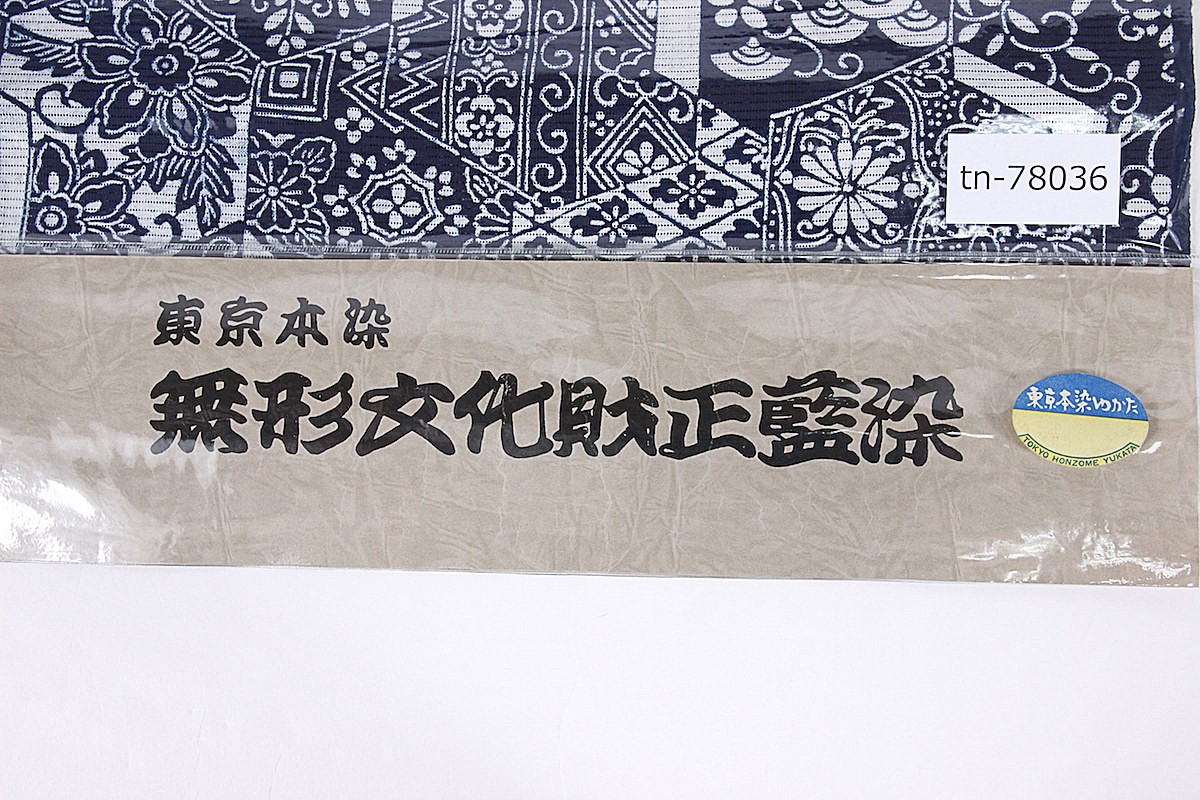 tn-78036
東京本染
無形文化財正藍染
東京本染ゆかた
TOKYO HONZOME YUKATA